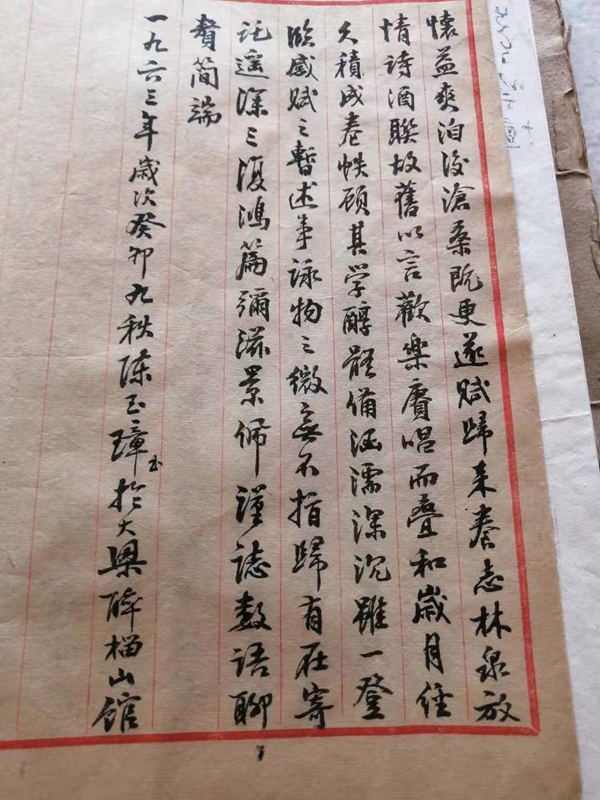 懷益爽洎後滄桑既更遂賦歸来養志林泉放
情詩酒聯故舊以言歡樂賡唱而疊和歲月经
久積成卷帙顾其学醇體備涵濡深沉雖一登
臨感賦之暫述事詠物之微無不指歸有在寄
託遥深三復鴻篇彌滋景佩謹誌數語聊
贅簡端
一九六三年歲次癸卯九秋陈玉璋於大梁醉榴山馆